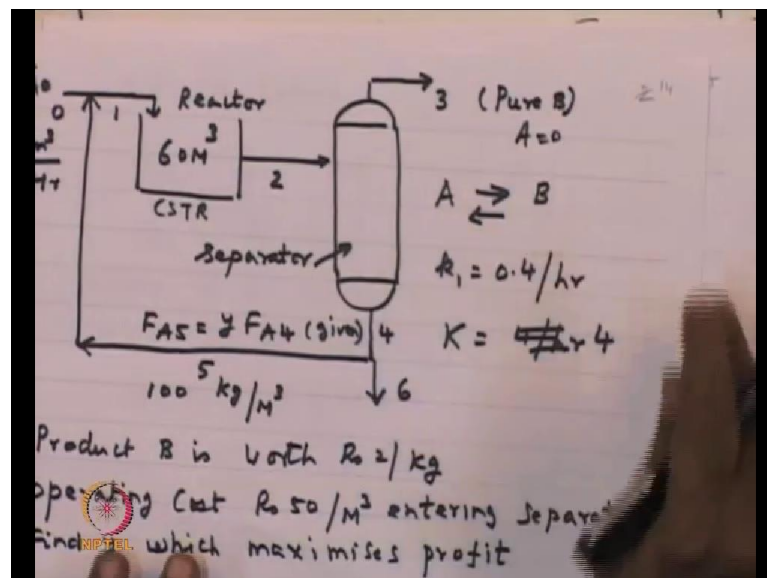 0
1
Reactor
60M³
CSTR
2
3 (Pure B)
A=0
A ⇌ B
Separator
k₁ = 0.4/hr
K = 4
F_A5 = y F_A4 (given)
4
5
100 kg/M³
6
Product B is worth Rs 2/kg
operating Cost Rs 50/M³ entering
Find which maximises profit
NPTEL